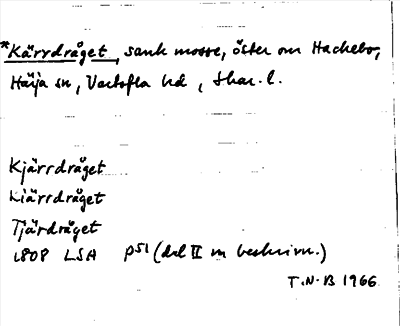 *Kärrdråget, sank mosse, öster om Hackebo,
Härja sn, Vartofta hd, Skar. l.
Kjärrdråget
Kiärrdråget
Tjärdråget
1808 LSA P51 (del II m beskrivn.)
T.N-B 1966